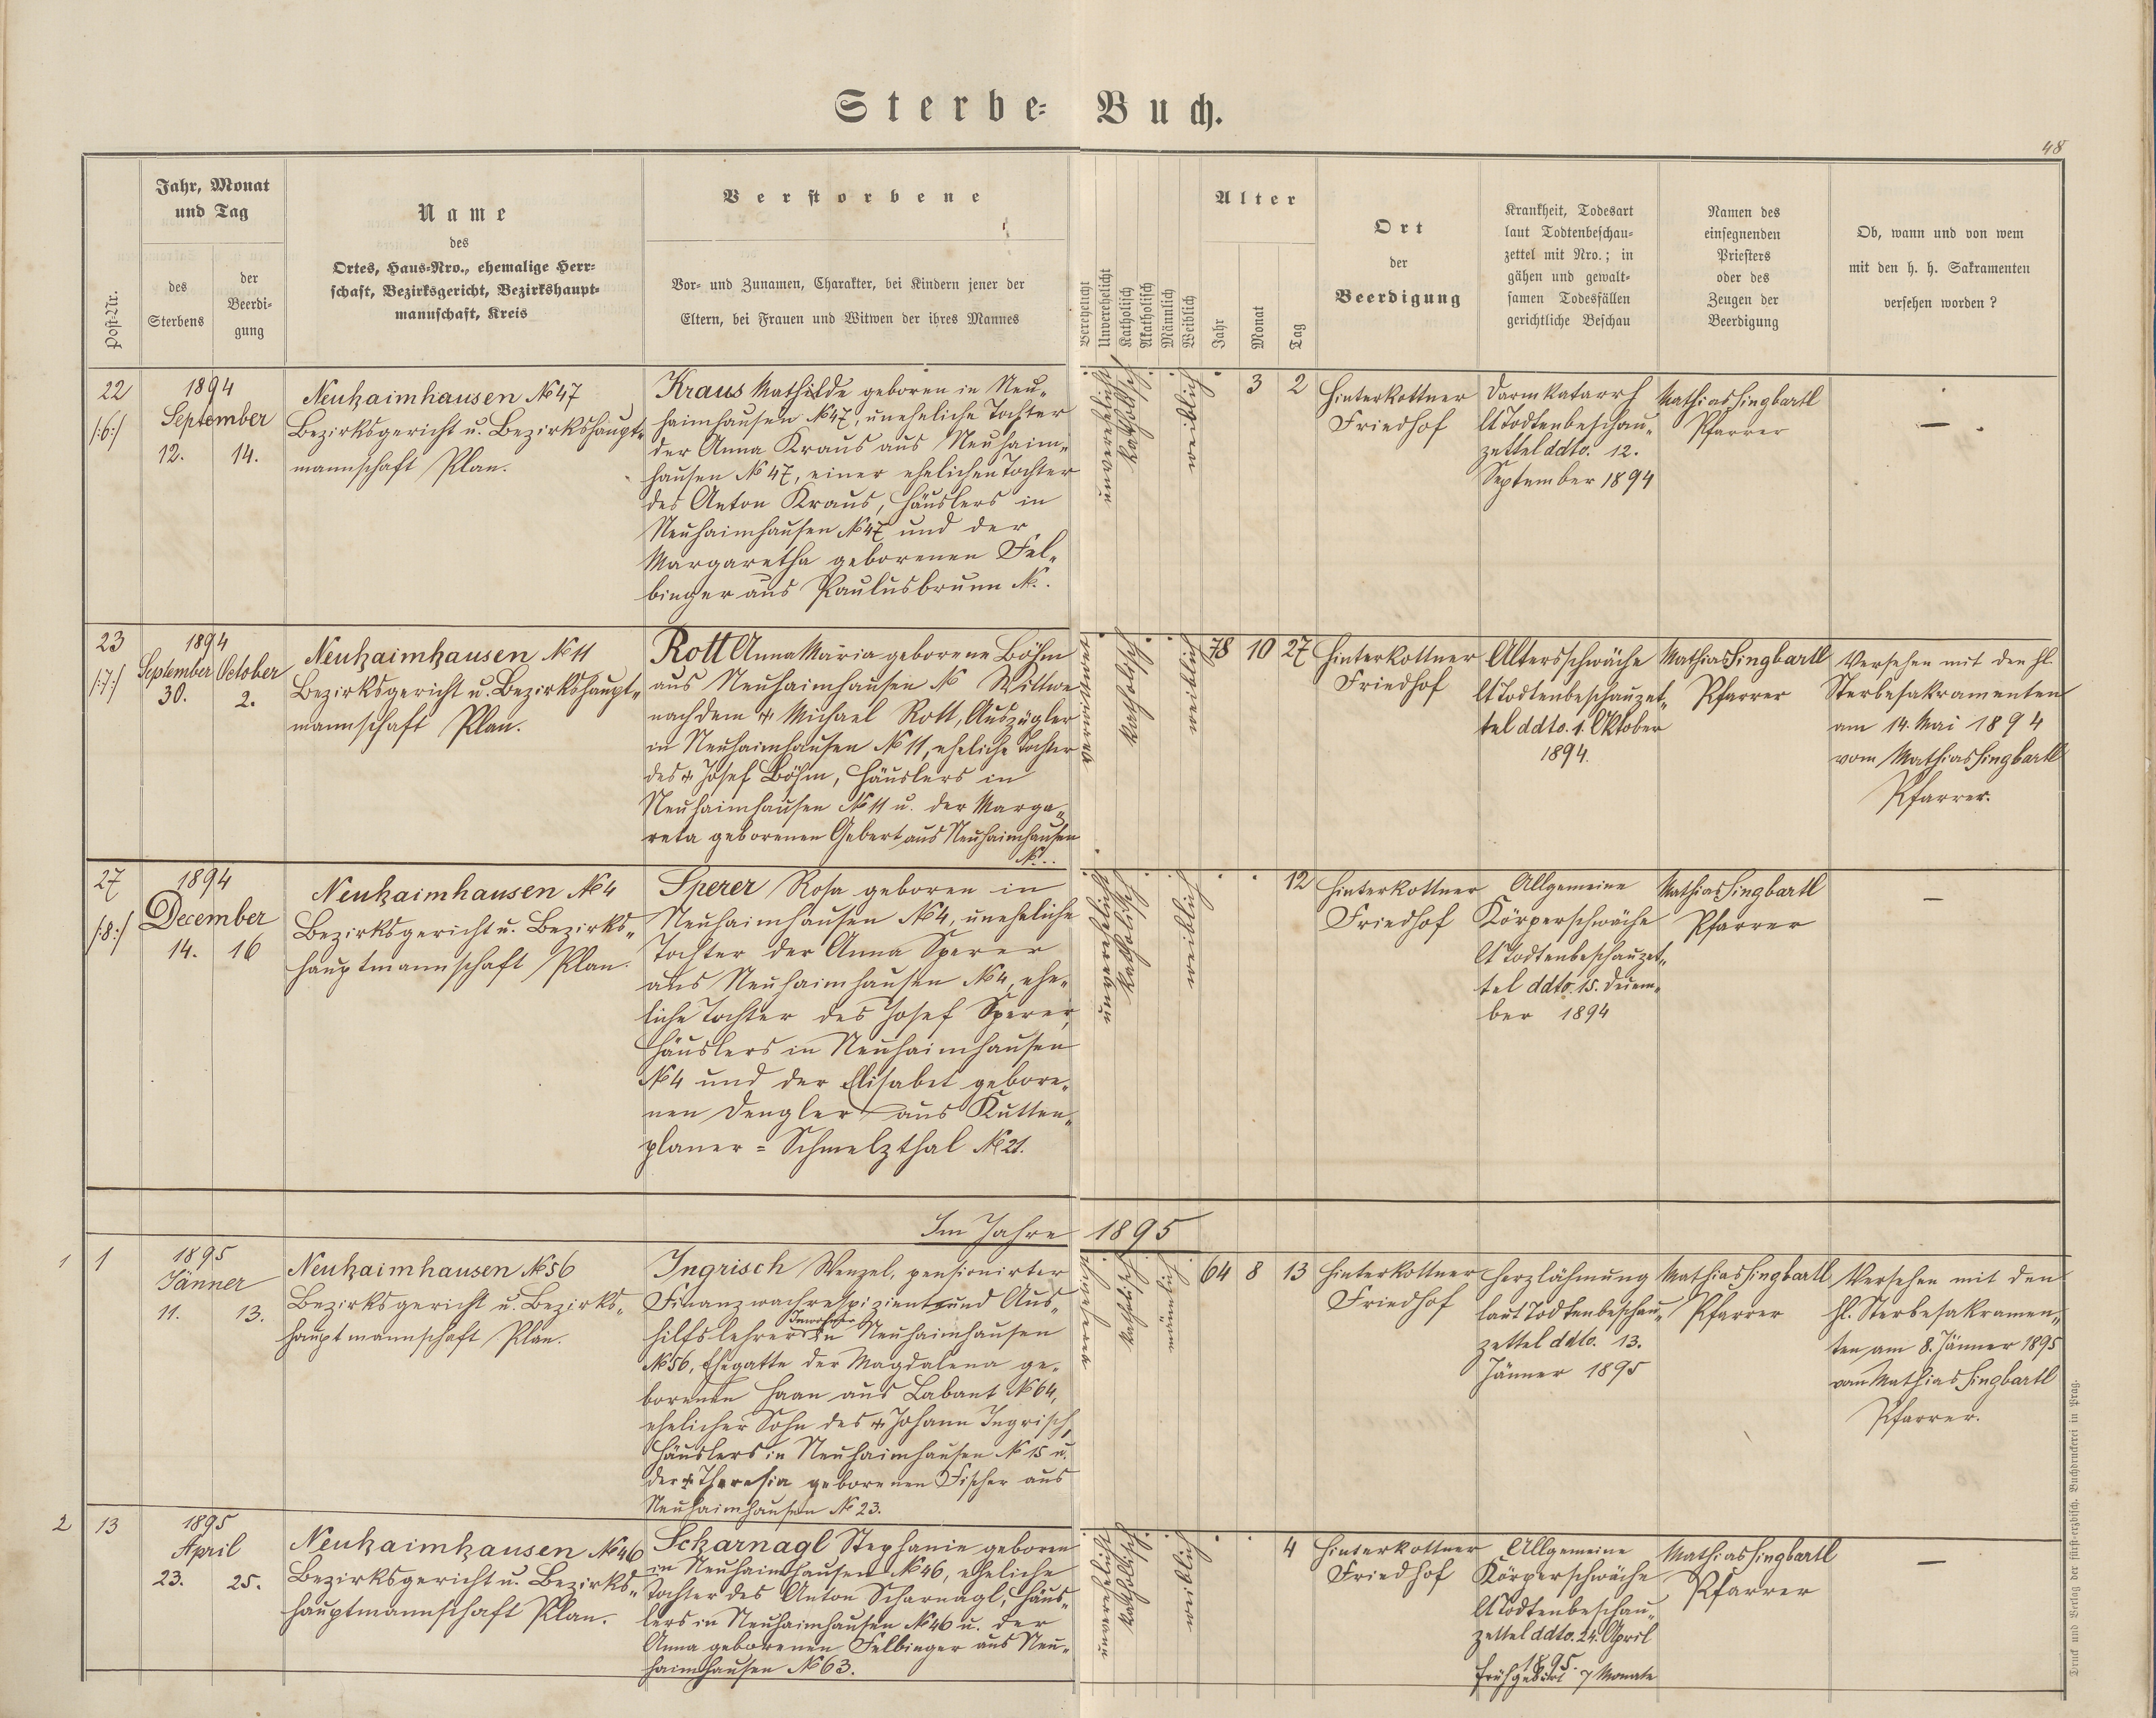 Sterbe-Buch.
48
Post-Nr.
Jahr, Monat
und Tag
des
Sterbens
der
Beerdi-
gung
Name
des
Ortes, Haus-Nro., ehemalige Herr-
schaft, Bezirksgericht, Bezirkshaupt-
mannschaft, Kreis
Verstorbene
Vor- und Zunamen, Charakter, bei Kindern jener der
Eltern, bei Frauen und Witwen der ihres Mannes
Verehelicht
Unverehelicht
Katholisch
Akatholisch
Männlich
Weiblich
Alter
Jahr
Monat
Tag
Ort
der
Beerdigung
Krankheit, Todesart
laut Todtenbeschau-
zettel mit Nro.; in
gähen und gewalt-
samen Todesfällen
gerichtliche Beschau
Namen des
einsegnenden
Priesters
oder des
Zeugen der
Beerdigung
Ob, wann und von wem
mit den h. h. Sakramenten
versehen worden?
22
/:6:/
1894
September
12. 14.
Neuhaimhausen No 47
Bezirksgericht u. Bezirkshaupt-
mannschaft Plan.
Kraus Mathilde geboren in Neu-
haimhausen No 47, uneheliche Tochter
der Anna Kraus aus Neuhaim-
hausen No 47, einer ehelichen Tochter
des Anton Kraus, Häuslers in
Neuhaimhausen No 47 und der
Margaretha geborenen Fel-
binger aus Paulusbrunn No.
unverehelicht
katholisch
weiblich
3 2
Hinterkottner
Friedhof
Darmkatarrh
lt Todtenbeschau-
zettel ddto. 12.
September 1894
Mathias Singbartl
Pfarrer
—
23
/:7:/
1894
September October
30. 2.
Neuhaimhausen No 11
Bezirksgericht u. Bezirkshaupt-
mannschaft Plan.
Rott Anna Maria geborene Böhm
aus Neuhaimhausen No Wittwe
nach dem + Michael Rott, Auszügler
in Neuhaimhausen No 11, eheliche Tochter
des + Josef Böhm, Häuslers in
Neuhaimhausen No 11 u. der Marga-
reta geborenen Gebert aus Neuhaimhausen
No..
verwitwet
katholisch
weiblich
78 10 27
Hinterkottner
Friedhof
Altersschwäche
lt Todtenbeschauzet-
tel ddto. 1. Oktober
1894.
Mathias Singbartl
Pfarrer
Versehen mit den hl.
Sterbesakramenten
am 14. Mai 1894
vom Mathias Singbartl
Pfarrer.
27
/:8:/
1894
December
14. 16
Neuhaimhausen No 4
Bezirksgericht u. Bezirks-
hauptmannschaft Plan.
Sperer Rosa geboren in
Neuhaimhausen No 4, uneheliche
Tochter der Anna Sperer
aus Neuhaimhausen No 4, ehe-
liche Tochter des Josef Sperer,
Häuslers in Neuhaimhausen
No 4 und der Elisabet gebore-
nen Dengler aus Kutten-
planer = Schmelzthal No 21.
unverehelicht
katholisch
weiblich
12
Hinterkottner
Friedhof
Allgemeine
Körperschwäche
lt Todtenbeschauzet-
tel ddto. 15. Dezem-
ber 1894
Mathias Singbartl
Pfarrer
—
Im Jahre 1895
1
1
1895
Jänner
11. 13.
Neuhaimhausen No 56
Bezirksgericht u. Bezirks-
hauptmannschaft Plan.
Ingrisch Wenzel, pensionirter
Finanzwachrespizient und Aus-
Inwohner
hilfslehrer in Neuhaimhausen
No 56, Ehegatte der Magdalena ge-
borenen Haan aus Labant No 64,
ehelicher Sohn des + Johann Ingrisch,
Häuslers in Neuhaimhausen No 15 u.
der + Theresia geborenen Fischer aus
Neuhaimhausen No 23.
katholisch
männlich
64 8 13
Hinterkottner
Friedhof
Herzlähmung
laut Todtenbeschau-
zettel ddto. 13.
Jänner 1895
Mathias Singbartl
Pfarrer
Versehen mit den
hl. Sterbesakramen-
ten am 8. Jänner 1895
vom Mathias Singbartl
Pfarrer.
2
13
1895
April
23. 25.
Neuhaimhausen No 46
Bezirksgericht u. Bezirks-
hauptmannschaft Plan.
Scharnagl Stephanie geboren
in Neuhaimhausen No 46, eheliche
Tochter des Anton Scharnagl, Häus-
lers in Neuhaimhausen No 46 u. der
Anna geborenen Felbinger aus Neu-
haimhausen No 63.
unverehelicht
katholisch
weiblich
4
Hinterkottner
Friedhof
Allgemeine
Körperschwäche
lt Todtenbeschau-
zettel ddto. 24. April
1895.
Frühgeburt 7 Monate
Mathias Singbartl
Pfarrer
—
Druck und Verlag der fürst-erzbisch. Buchdruckerei in Prag.